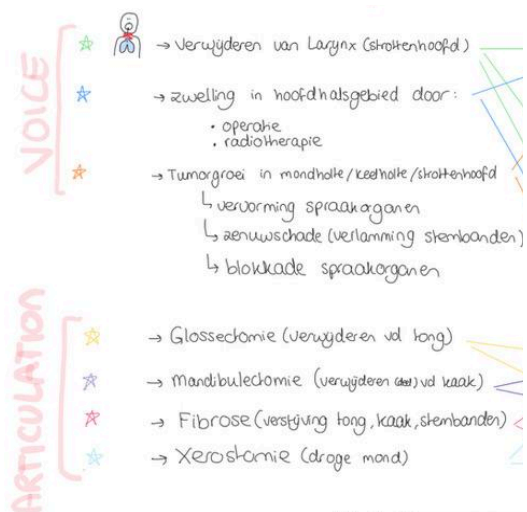 VOICE
→ Verwijderen van Larynx (strottenhoofd)
→ zwelling in hoofdhalsgebied door:
• operatie
• radiotherapie
→ Tumorgroei in mondholte/keelholte/strottenhoofd
↳ vervorming spraakorganen
↳ zenuwschade (verlamming stembanden)
↳ blokkade spraakorganen
ARTICULATION
→ Glossectomie (verwijderen vd tong)
→ Mandibulectomie (verwijderen vd kaak)
→ Fibrose (verstijving tong, kaak, stembanden)
→ Xerostomie (droge mond)